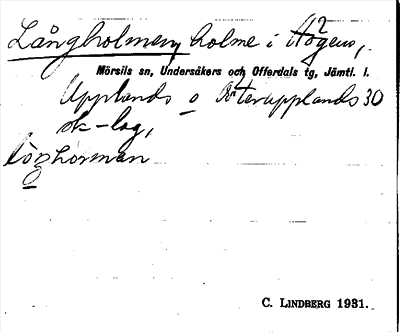 Långholmen, holme i Högens,
Mörsils sn, Undersåkers och Offerdals tg, Jämtl. l.
Upplands o Österupplands 30
sk-lag,
C. LINDBERG 1931.